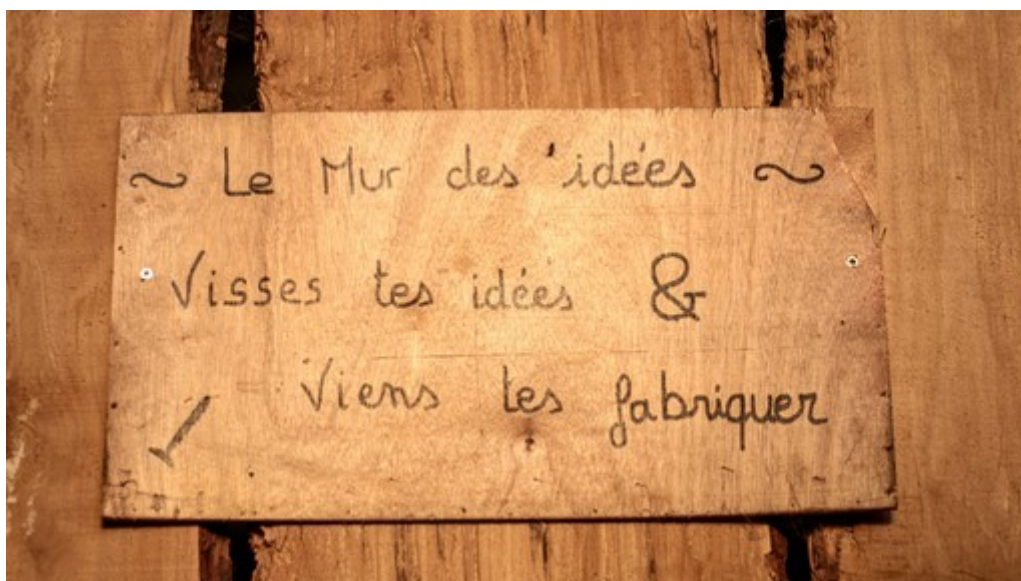 ~ Le Mur des idées ~
Visses tes idées &
Viens les fabriquer